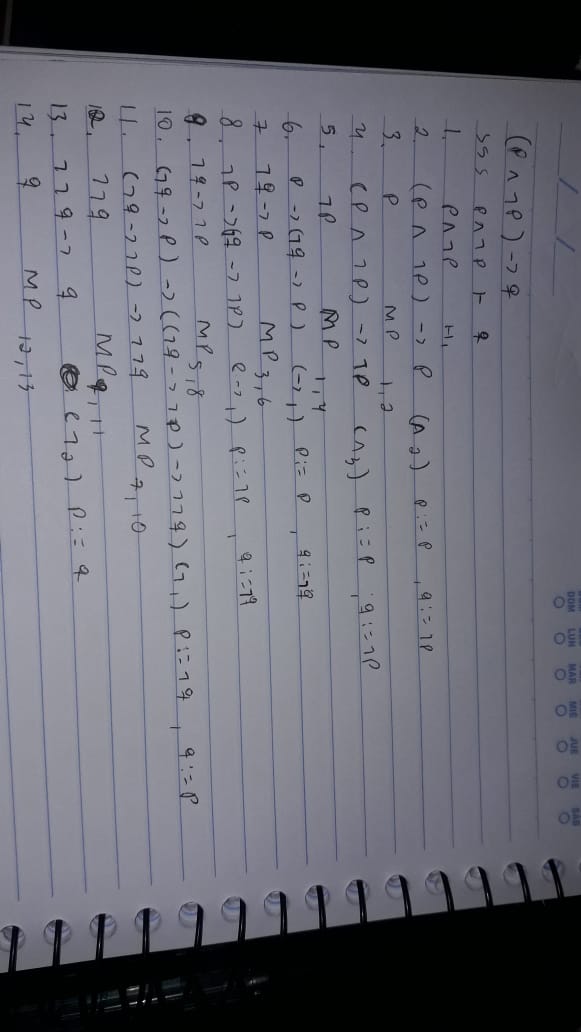 DOM LUN MAR MIE JUE VIE SAB
/ /
(P ∧ ¬P) -> q
sss P∧¬P ⊢ q
1. P∧¬P H₁
2. (P ∧ ¬P) -> P (∧₂) P:=P , q:=¬P
3. P MP 1,2
4. (P ∧ ¬P) -> ¬P (∧₃) P:=P , q:=¬P
5. ¬P MP 1,4
6. P ->(¬q -> P) (->₁) P:= P , q:=¬q
7 ¬q->P MP 3,6
8. ¬P ->(¬q -> ¬P) (->₁) P:=¬P , q:=¬q
9. ¬q->¬P MP 5,8
10. (¬q->P) ->((¬q->¬P)->¬¬q) (¬₁) P:=¬q , q:=P
11. (¬q->¬P) -> ¬¬q MP 7,10
12. ¬¬q MP 9,11
13. ¬¬q-> q (¬₂) P:= q
14. q MP 12,13